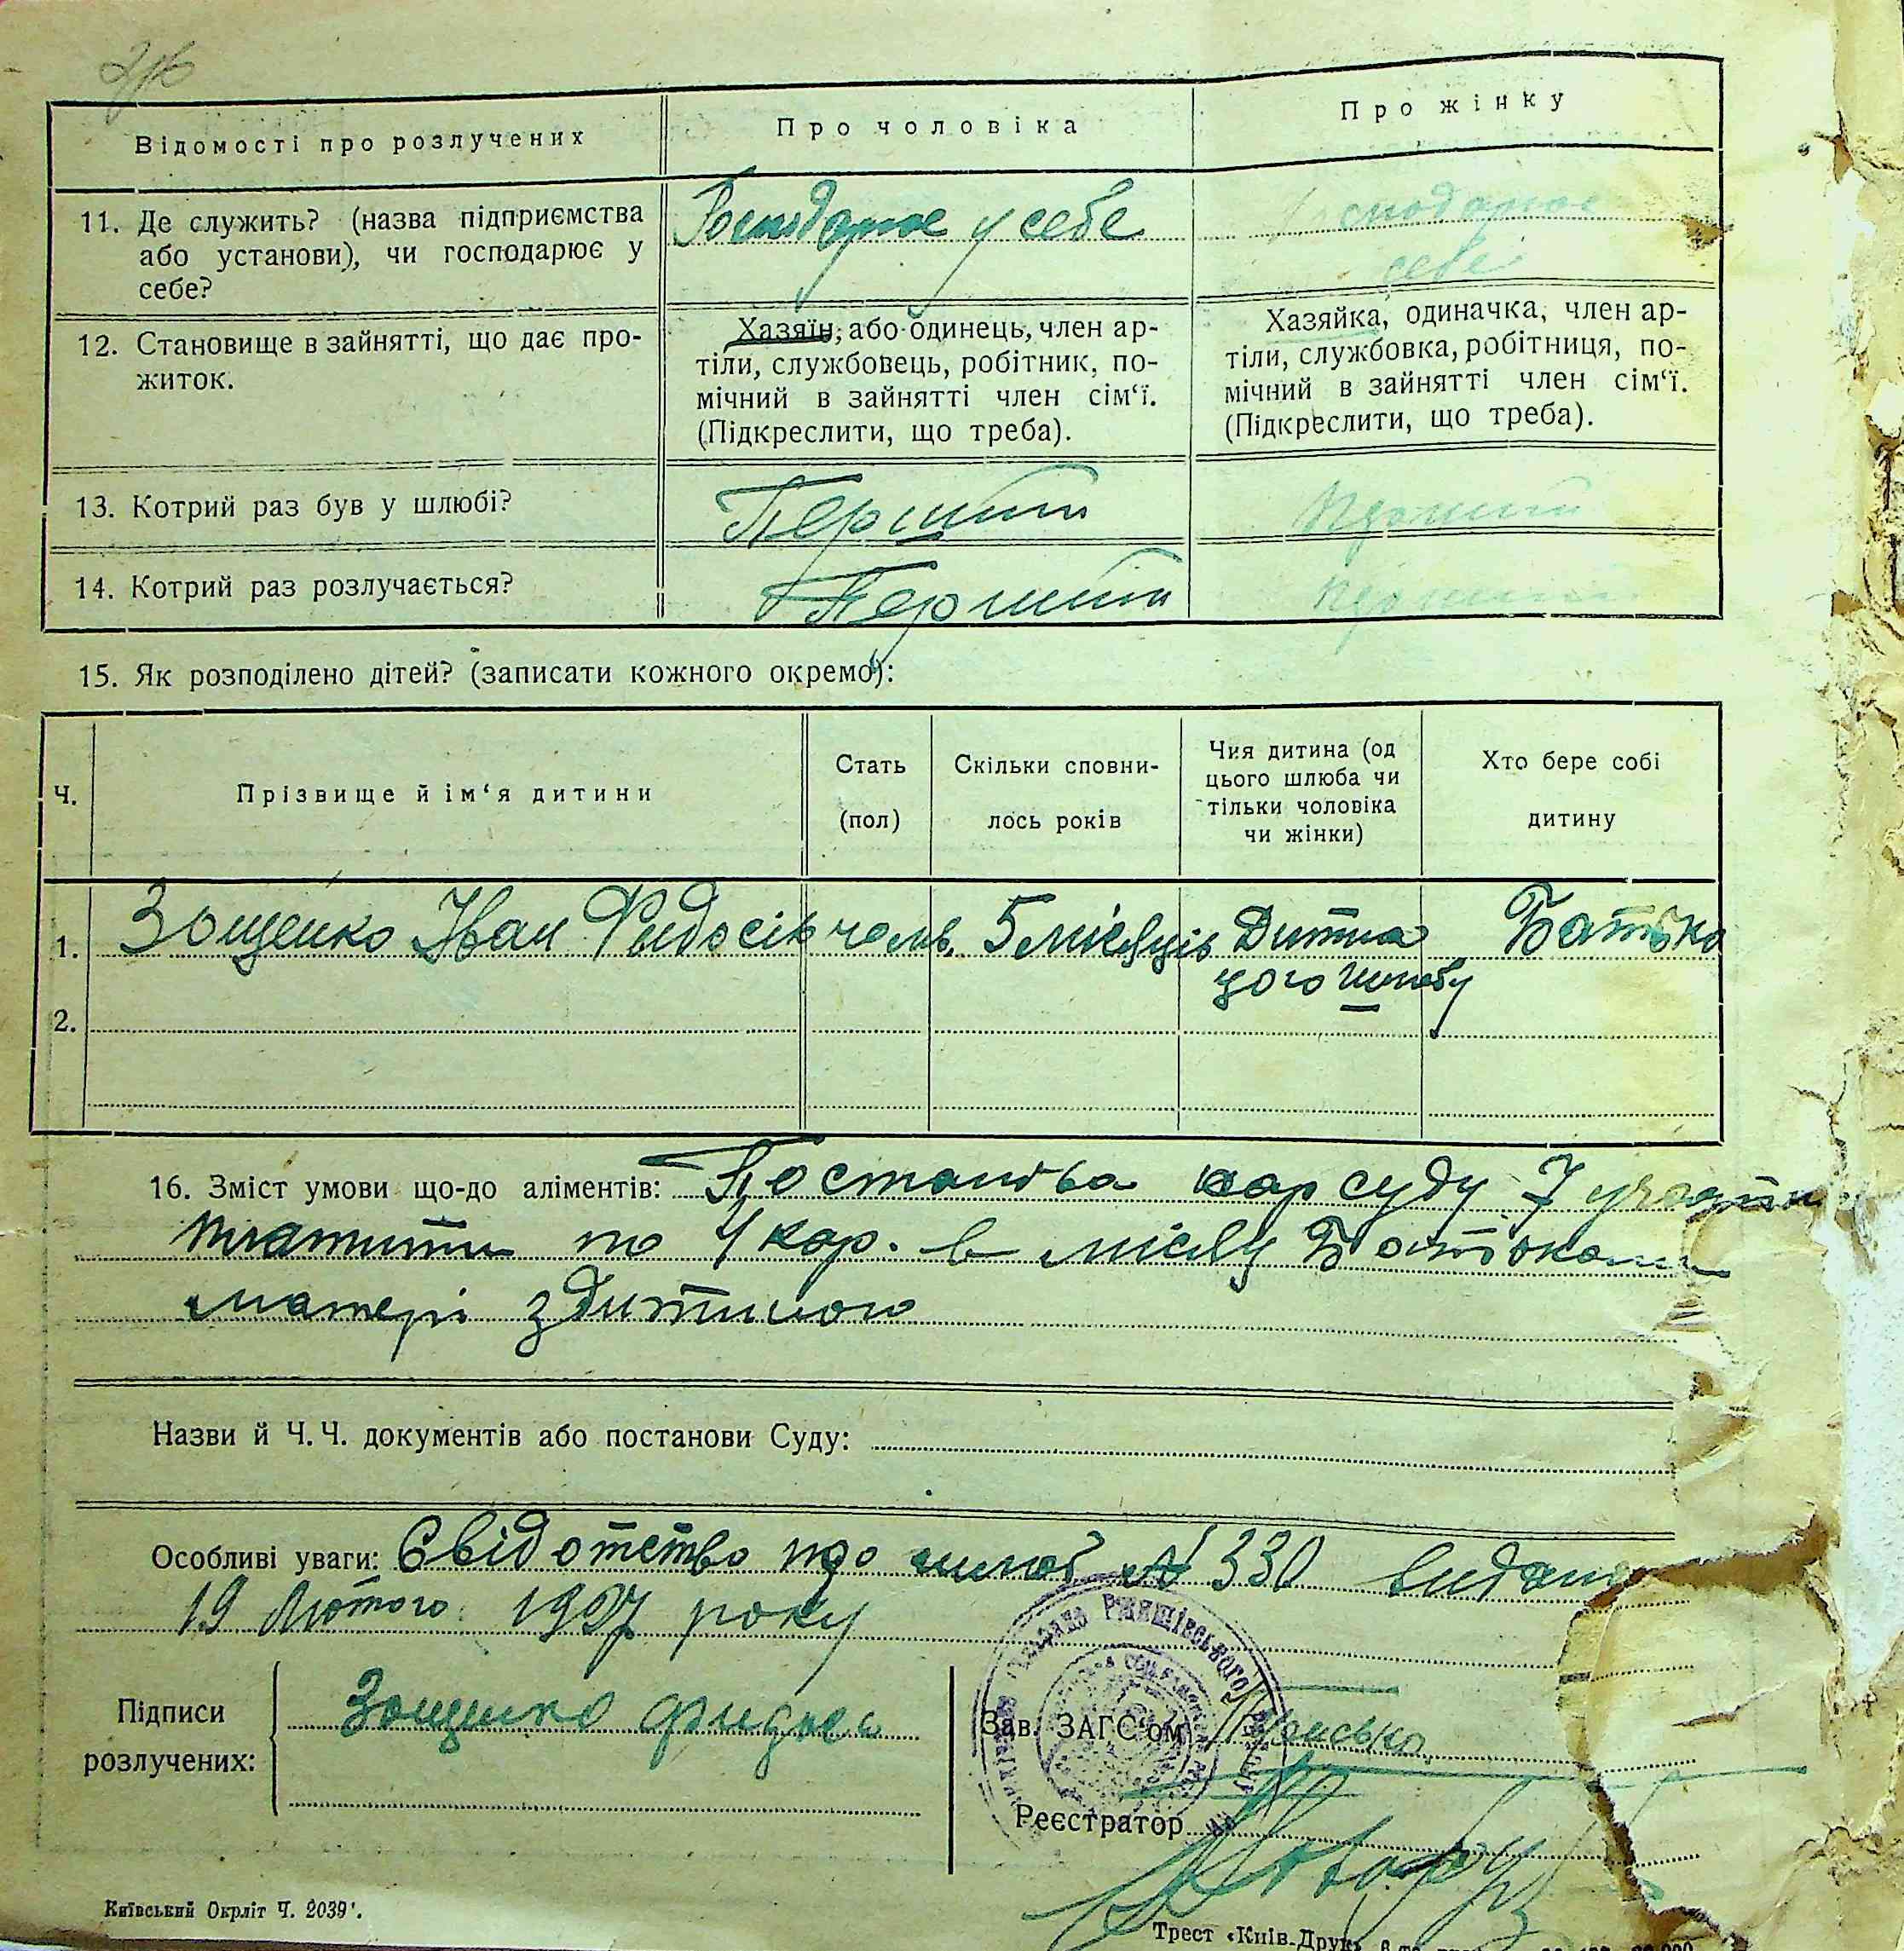 Відомості про розлучених
Про чоловіка
Про жінку
11. Де служить? (назва підприємства
або установи), чи господарює у
себе?
Господарює у себе
Господарює
себе
12. Становище в зайнятті, що дає про-
житок.
Хазяїн, або одинець, член ар-
тіли, службовець, робітник, по-
мічний в зайнятті член сім‘ї.
(Підкреслити, що треба).
Хазяйка, одиначка, член ар-
тіли, службовка, робітниця, по-
мічний в зайнятті член сім‘ї.
(Підкреслити, що треба).
13. Котрий раз був у шлюбі?
Перший
Перший
14. Котрий раз розлучається?
Перший
Перший
15. Як розподілено дітей? (записати кожного окремо):
Ч.
Прізвище й ім‘я дитини
Стать
(пол)
Скільки сповни-
лось років
Чия дитина (од
цього шлюба чи
тільки чоловіка
чи жінки)
Хто бере собі
дитину
1. Зощенко Іван Фидосів чолов. 5 місяців Дитина Батько
цього шлюбу
2.
16. Зміст умови що-до аліментів: Постанова нар суду 7
платити по 4 кар. в місяц Батькам
матері з дитиною
Назви й Ч. Ч. документів або постанови Суду:
Особливі уваги: Свідотство про шлюб № 330 видано
19 Лютого 1927 року
Підписи
розлучених:
Зощенко Фидось
Зав. ЗАГС‘ом
Реєстратор
Ржищівського
Київський Окрліт Ч. 2039
Трест «Київ-Друк»